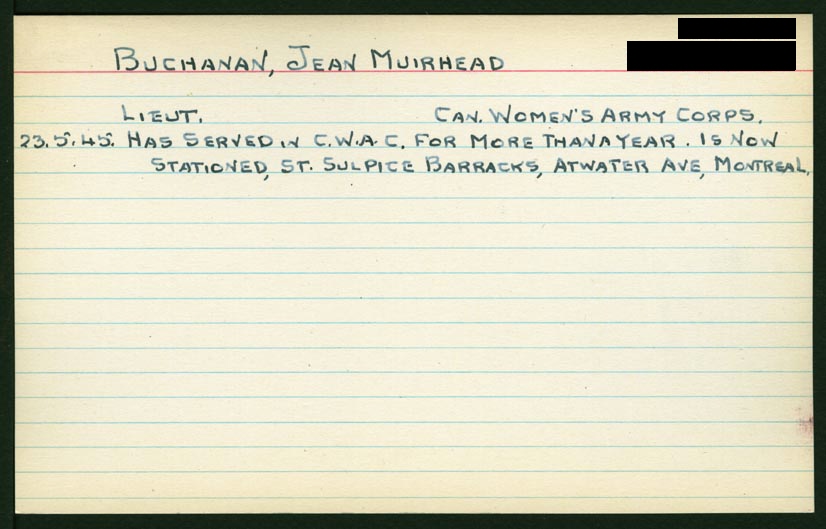 BUCHANAN, JEAN MUIRHEAD
LIEUT. CAN. WOMEN'S ARMY CORPS.
23.5.45. HAS SERVED IN C.W.A.C. FOR MORE THAN A YEAR. IS NOW
STATIONED, ST. SULPICE BARRACKS, ATWATER AVE, MONTREAL.